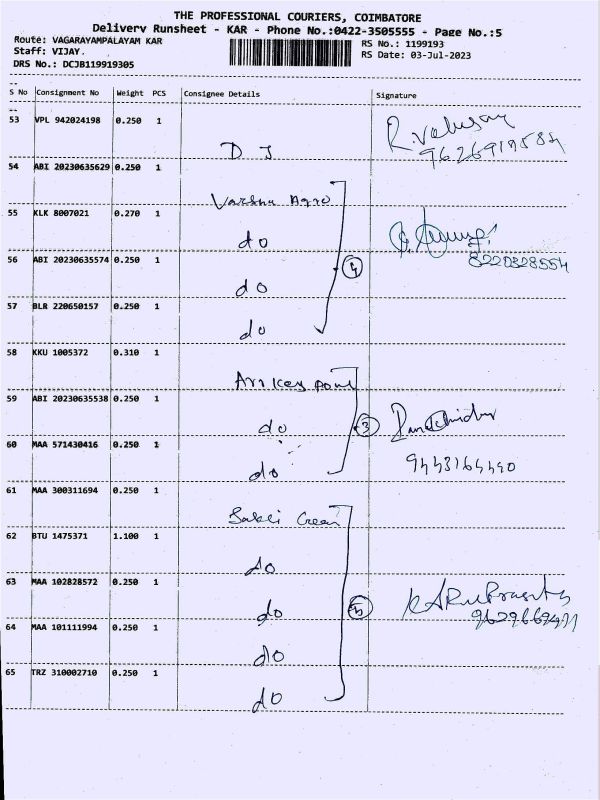 THE PROFESSIONAL COURIERS, COIMBATORE
Delivery Runsheet - KAR - Phone No.:0422-3505555 - Page No.:5
Route: VAGARAYAMPALAYAM KAR
RS No.: 1199193
Staff: VIJAY.
RS Date: 03-Jul-2023
DRS No.: DCJB119919305
S No Consignment No Weight PCS Consignee Details Signature
53 VPL 942024198 0.250 1
D J
54 ABI 20230635629 0.250 1
Varsha Agro
55 KLK 8007021 0.270 1
do
56 ABI 20230635574 0.250 1
8220328554
do
4
57 BLR 220650157 0.250 1
do
58 KKU 1005372 0.310 1
59 ABI 20230635538 0.250 1
do
3
60 MAA 571430416 0.250 1
do
61 MAA 300311694 0.250 1
62 BTU 1475371 1.100 1
do
63 MAA 102828572 0.250 1
do
5
64 MAA 101111994 0.250 1
do
65 TRZ 310002710 0.250 1
do